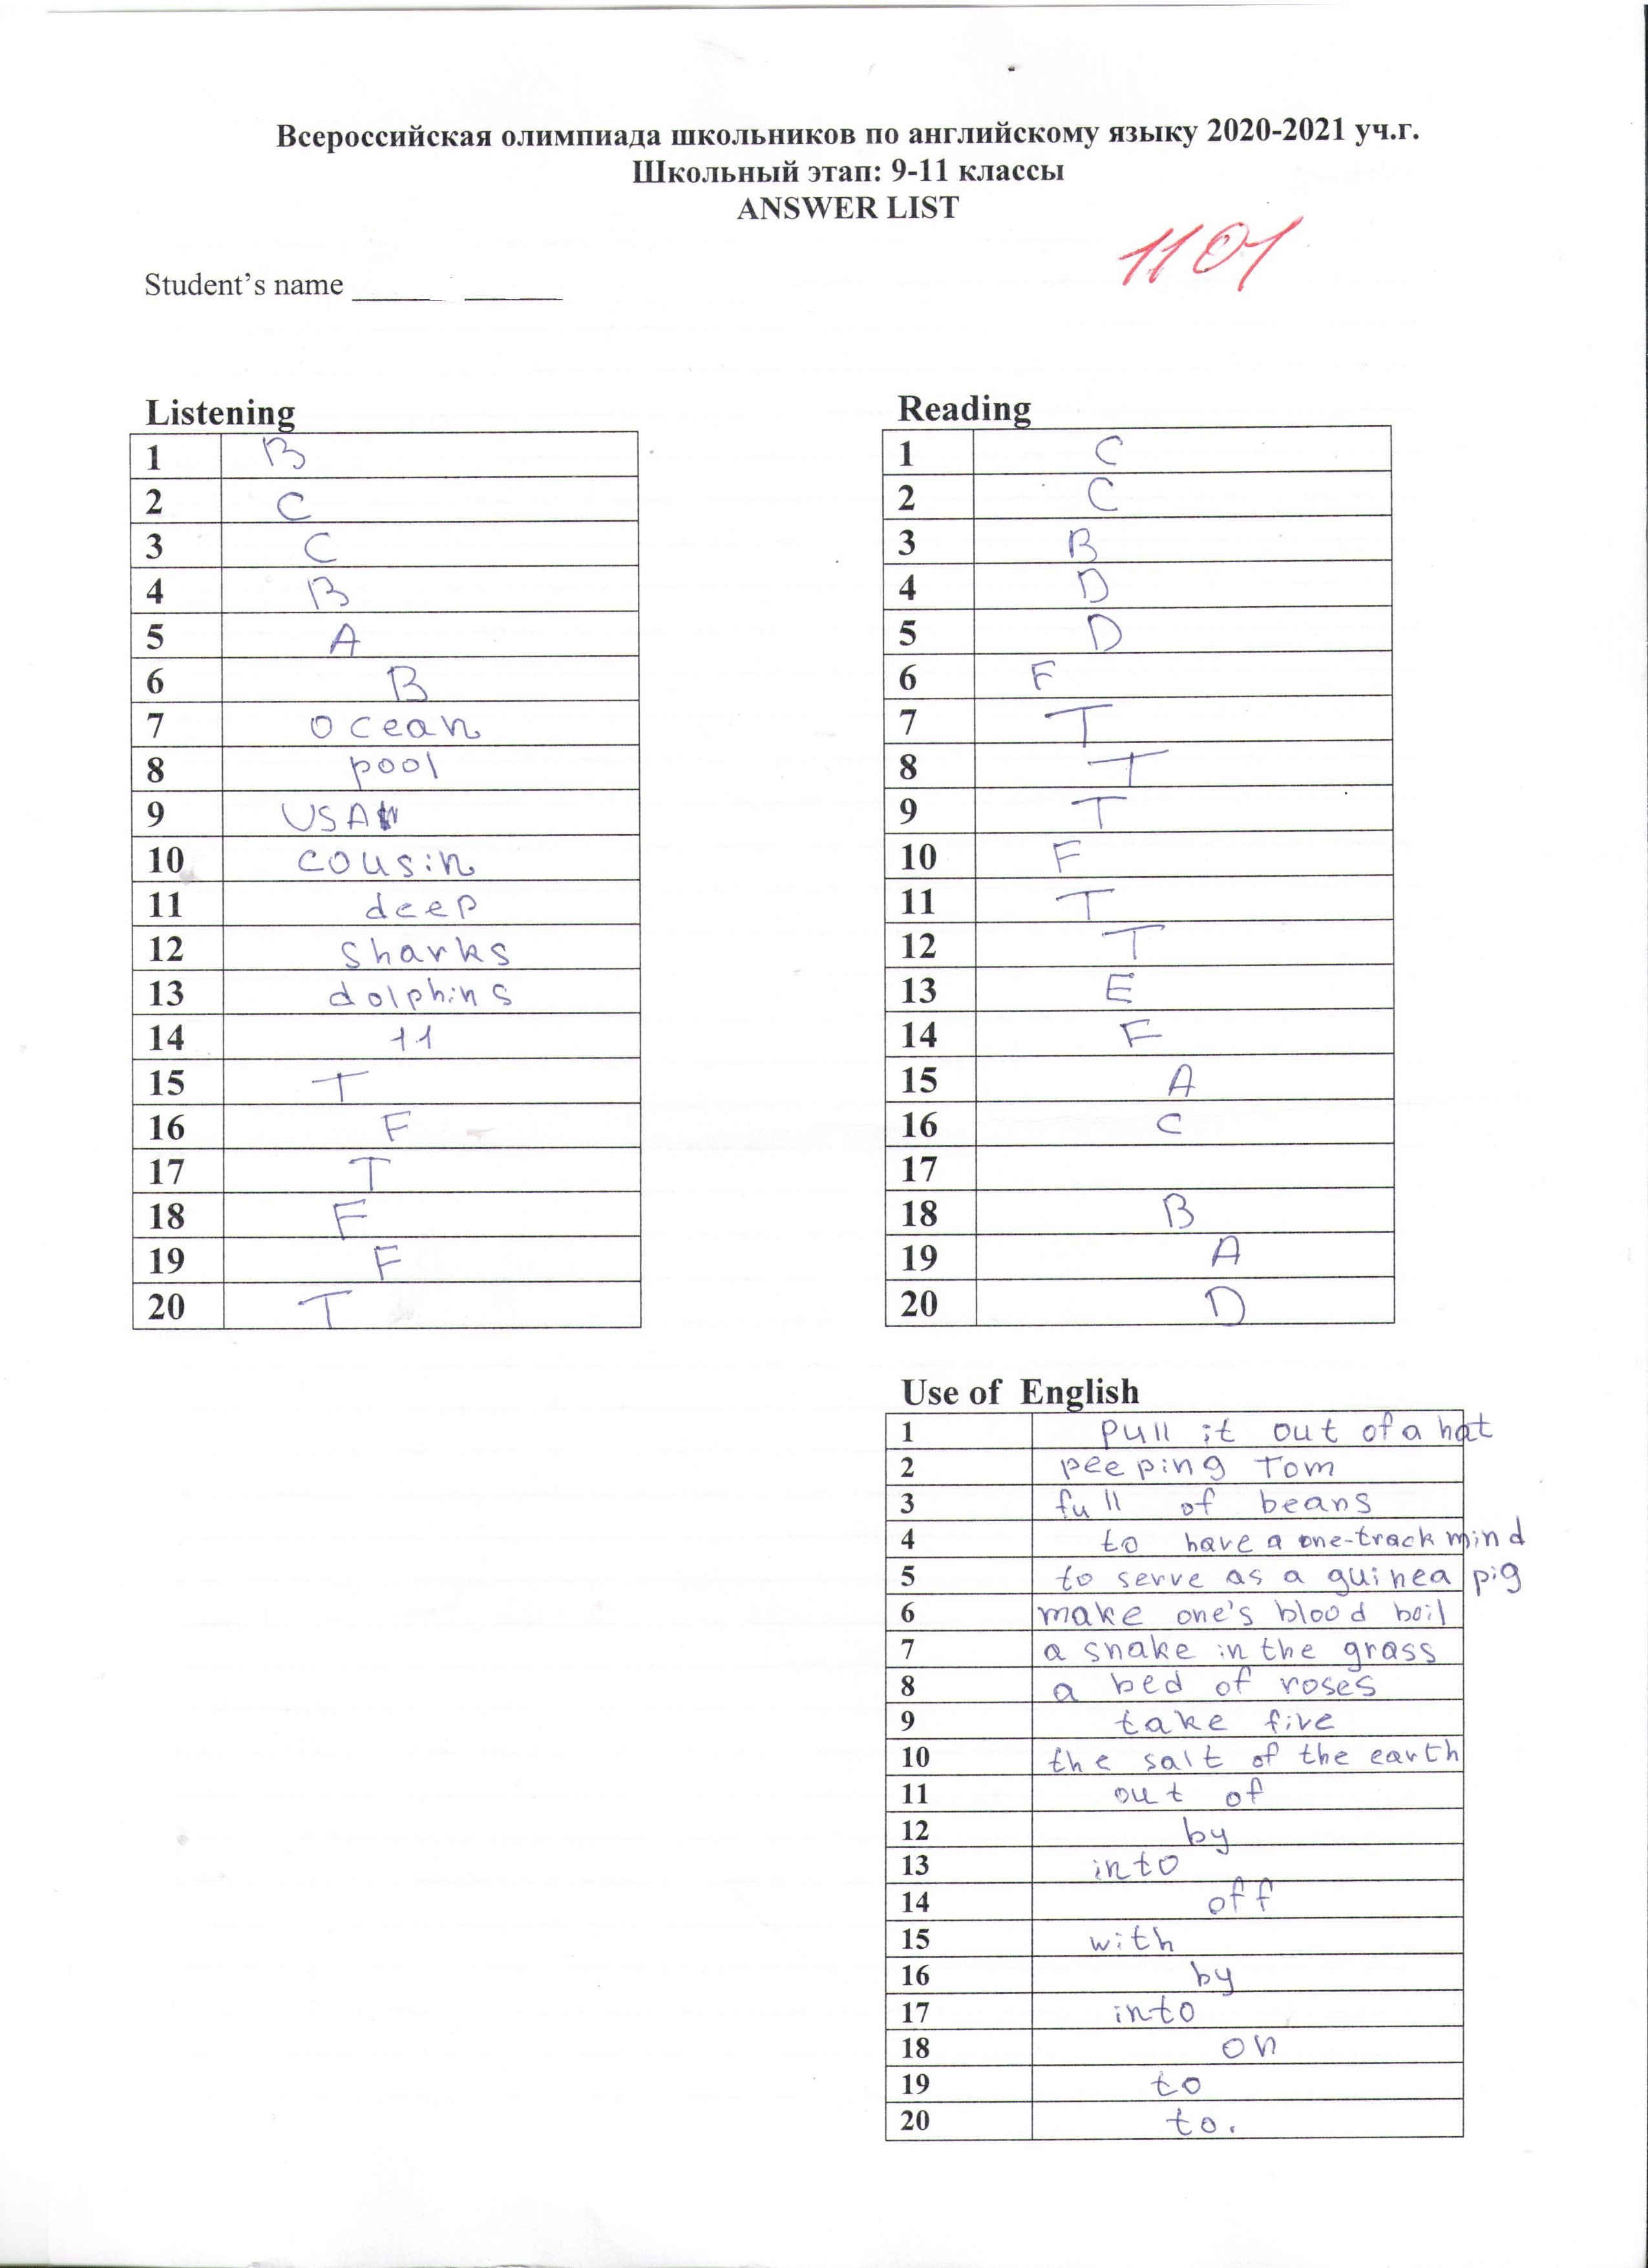 Всероссийская олимпиада школьников по английскому языку 2020-2021 уч.г.
Школьный этап: 9-11 классы
ANSWER LIST
1101
Student's name
Listening
1 B
2 C
3 C
4 B
5 A
6 B
7 ocean
8 pool
9 USA
10 cousin
11 deep
12 sharks
13 dolphins
14 11
15 T
16 F
17 T
18 F
19 F
20 T
Reading
1 C
2 C
3 B
4 D
5 D
6 F
7 T
8 T
9 T
10 F
11 T
12 T
13 E
14 F
15 A
16 C
17
18 B
19 A
20 D
Use of English
1 pull it out of a hat
2 peeping Tom
3 full of beans
4 to have a one-track mind
5 to serve as a guinea pig
6 make one's blood boil
7 a snake in the grass
8 a bed of roses
9 take five
10 the salt of the earth
11 out of
12 by
13 into
14 off
15 with
16 by
17 into
18 on
19 to
20 to.